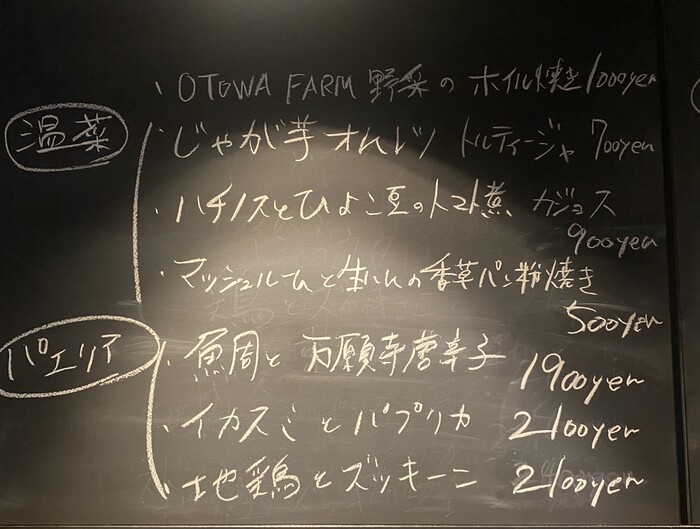 温菜
・OTOWA FARM 野菜の ホイル焼き 1000yen
・じゃが芋オムレツ トルティージャ 700yen
・ハチノスとひよこ豆のトマト煮 カジョス
900yen
・マッシュルームと生ハムの香草パン粉焼き
500yen
パエリア
・魚周と 万願寺唐辛子 1900yen
・イカスミとパプリカ 2100yen
・地鶏とズッキーニ 2100yen